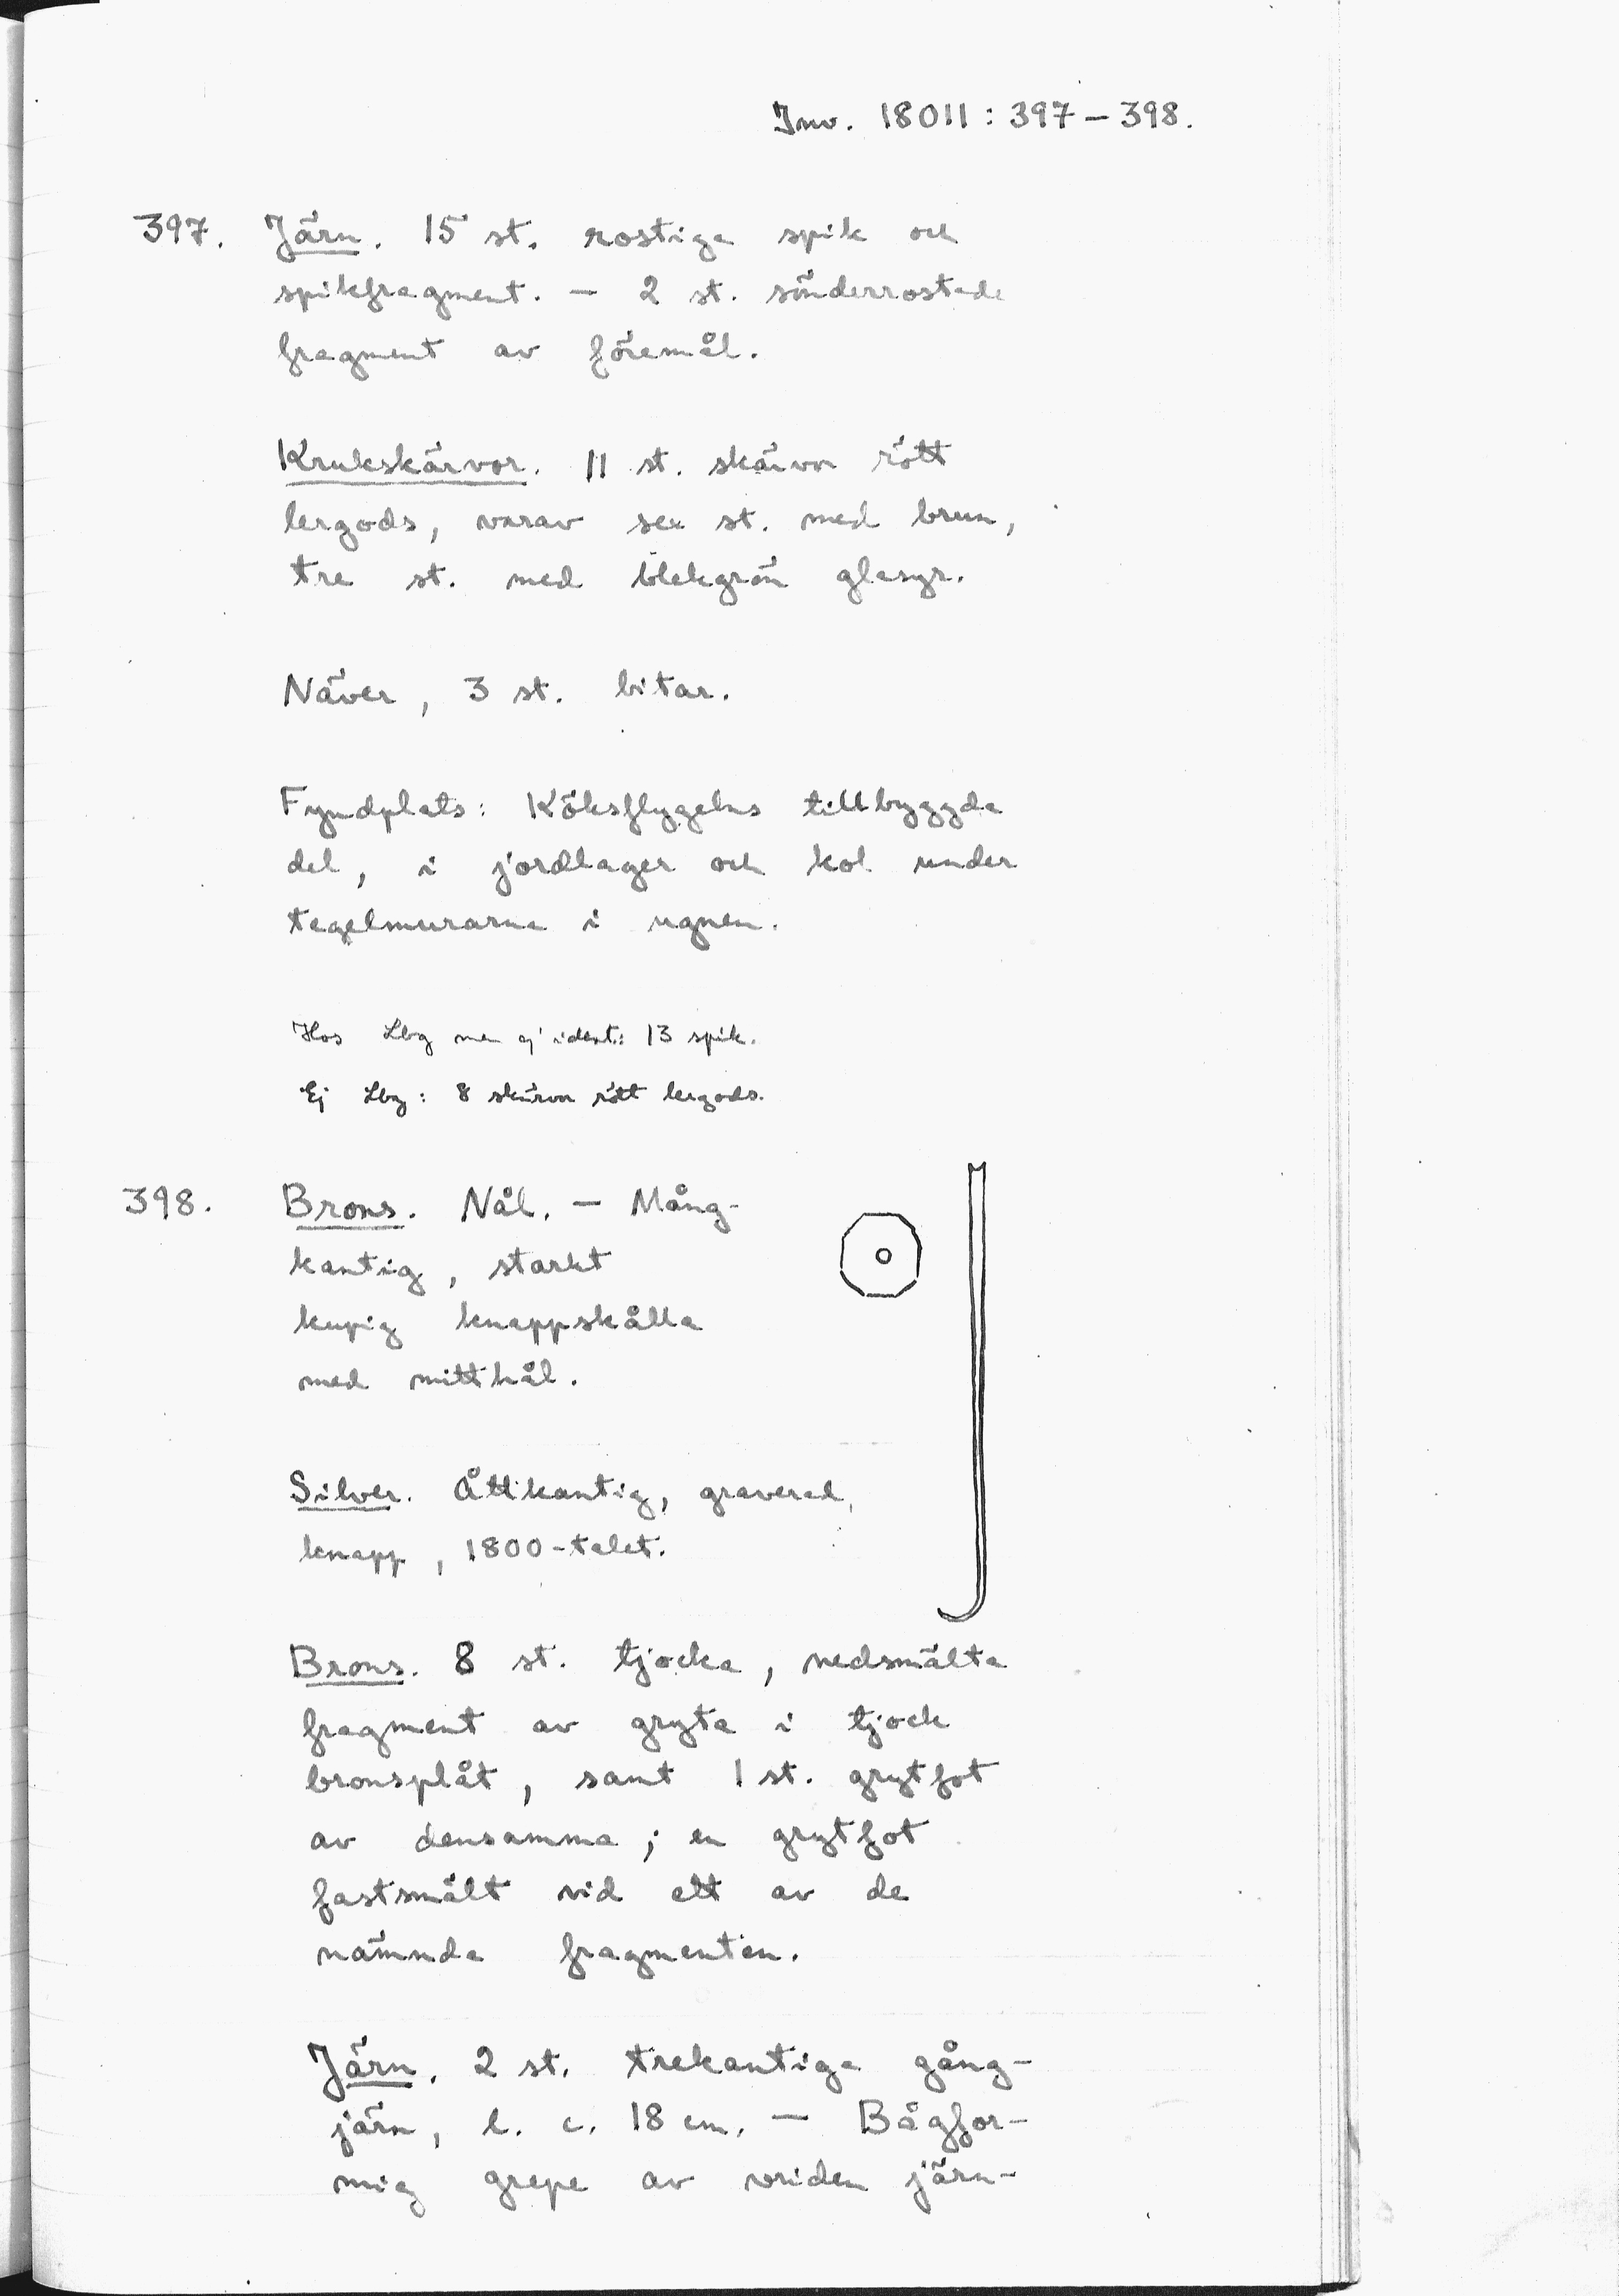 Inv. 18011: 397–398.
397. Järn. 15 st. rostiga spik och
spikfragment. – 2 st. sönderrostade
fragment av föremål.
Krukskärvor. 11 st. skärvor rött
lergods, varav sex st. med brun,
tre st. med blekgrön glasyr.
Näver, 3 st. bitar.
Fyndplats: Köksflygelns tillbyggda
del, i jordlager och kol under
tegelmurarna i ugnen.
Hos Lbg men ej ident: 13 spik.
Ej Lbg: 8 skärvor rött lergods.
398. Brons. Nål. – Mång-
kantig, starkt
kupig knappskålla
med mitthål.
Silver. Åttkantig, graverad,
knapp, 1800-talet.
Brons. 8 st. tjocka, nedsmälta
fragment av gryta i tjock
bronsplåt, samt 1 st. grytfot
av densamma; en grytfot
fastsmält vid ett av de
nämnda fragmenten.
Järn. 2 st. trekantiga gång-
järn, l. c. 18 cm. – Bågfor-
mig grepe av vriden järn-